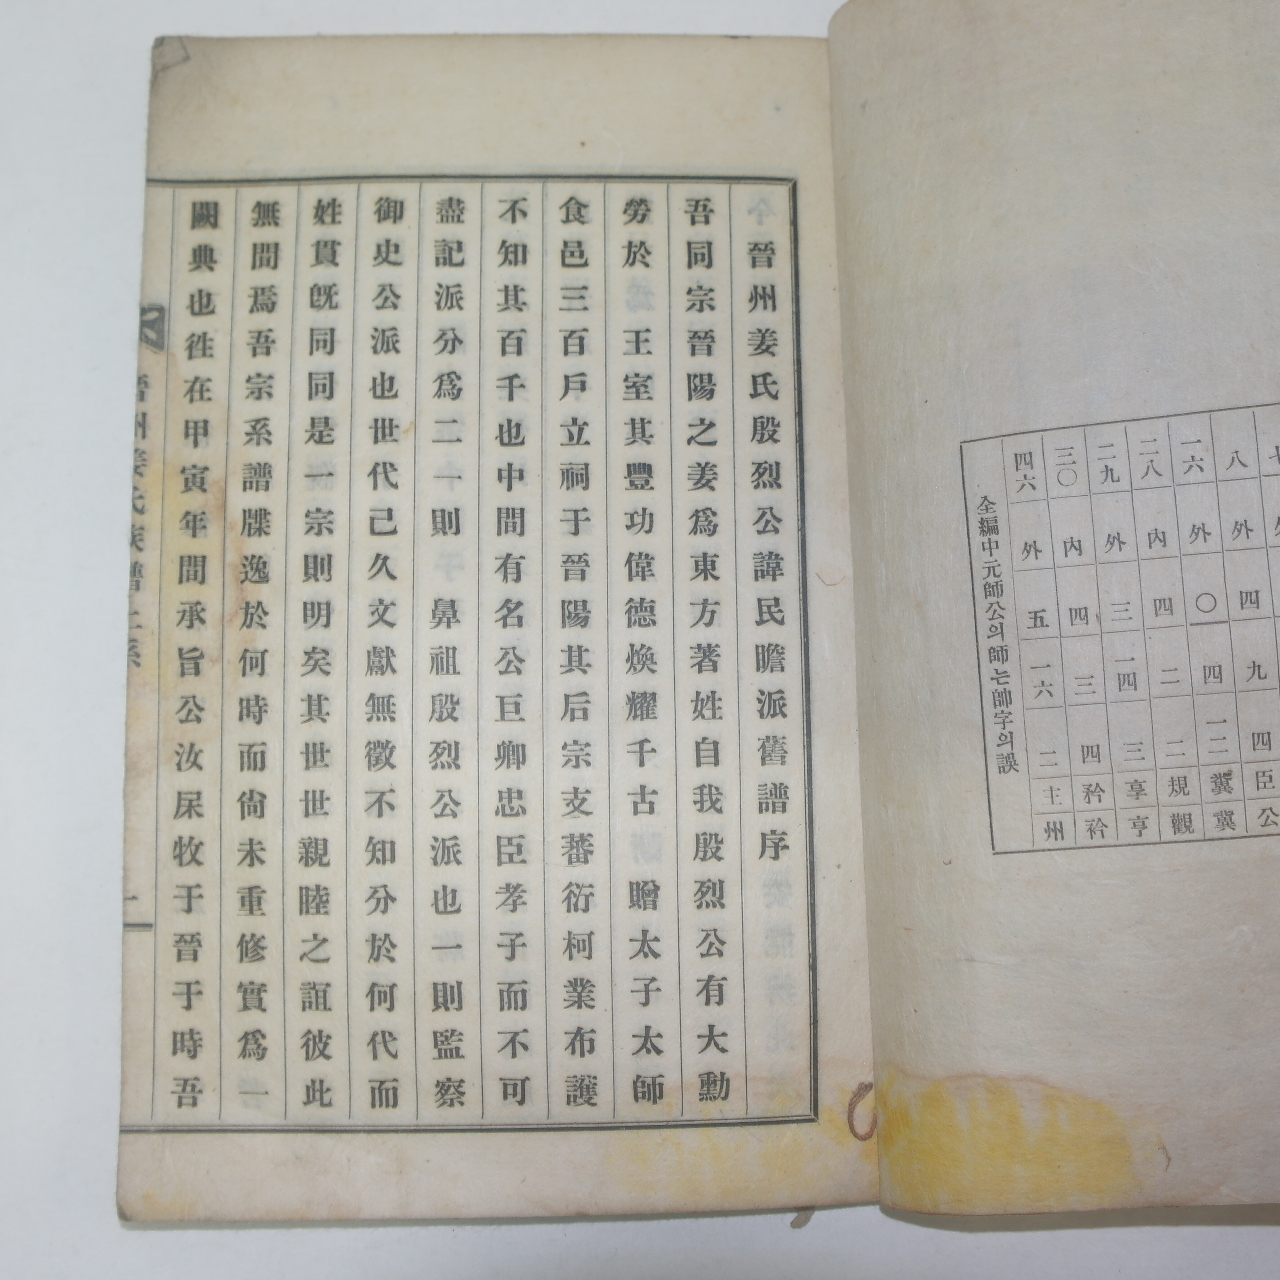 八 外 四 九 四 臣 公
一六 外 四 一二
二八 內 四 二 二 規 觀
二九 外 三 一四 三 享 亨
三〇 內 四 三 四 矜 衿
四六 外 五 一六 二 主 州
全編中元師公의師는帥字의誤
晉州姜氏殷烈公諱民瞻派舊譜序
吾同宗晉陽之姜爲東方著姓自我殷烈公有大勳
勞於 王室其豐功偉德煥耀千古 贈太子太師
食邑三百戶立祠于晉陽其后宗支蕃衍柯業布護
不知其百千也中間有名公巨卿忠臣孝子而不可
盡記派分爲二一則 鼻祖殷烈公派也一則監察
御史公派也世代己久文獻無徵不知分於何代而
姓貫旣同同是一宗則明矣其世世親睦之誼彼此
無間焉吾宗系譜牒逸於何時而尙未重修實爲一
闕典也徃在甲寅年間承旨公汝㞙牧于晉于時吾
晉州姜氏族譜上系